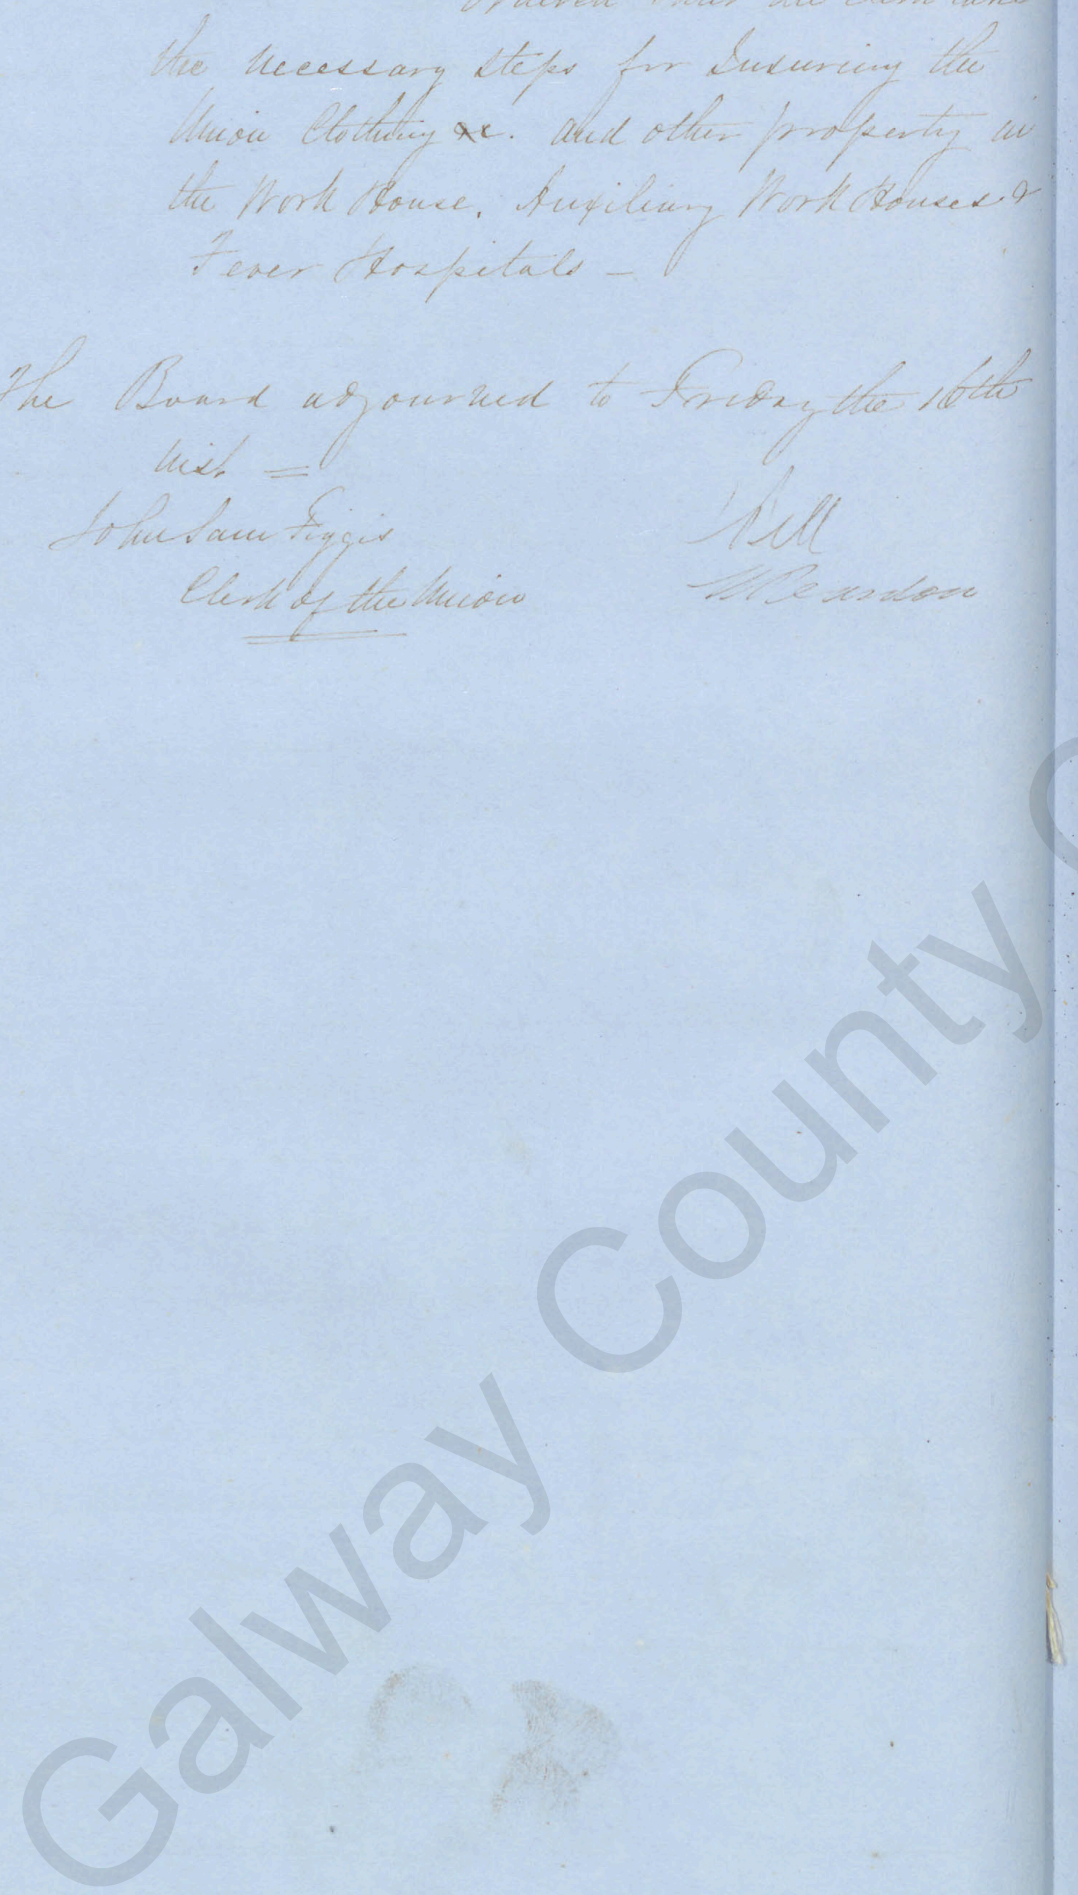 Ordered that the Clerk take
the necessary steps for Insuring the
Union Clothing &c. and other property in
the Work House, Auxiliary Work Houses &
Fever Hospitals –
The Board adjourned to Friday the 16th
Inst =
John Sam Figgis
Clerk of the Union
Reardon
Galway County